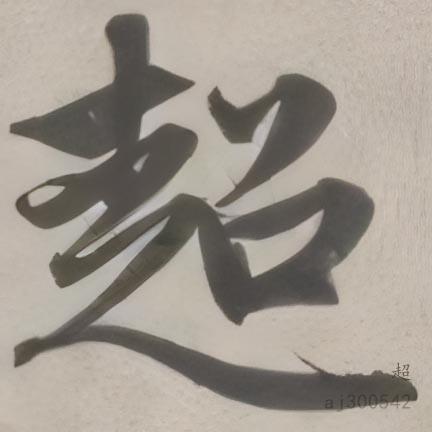 超
超
aj300542